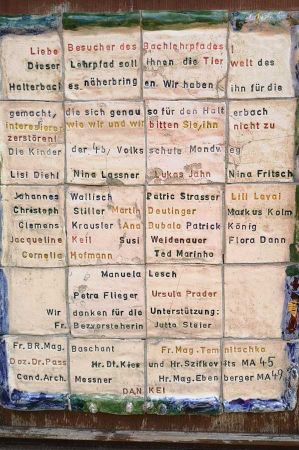 Liebe Besucher des Bachlehrpfades !
Dieser Lehrpfad soll ihnen die Tier welt des
Halterbach es näherbringen. Wir haben ihn für die
gemacht, die sich genau so für den Halt erbach
interessieren wie wir und wir bitten Sie, ihn nicht zu
zerstören!
Die Kinder der 4b, Volks schule Mondw eg
Lisi Diehl Nina Lassner Lukas Jahn Nina Fritsch
Johannes Wallisch Petric Strasser Lili Lavai
Christoph Stiller Martin Deutinger Markus Kolm
Clemens Krausler Ana Bubala Patrick König
Jacqueline Keil Susi Weidenauer Flora Dann
Cornelia Hofmann Ted Marinho
Manuela Lesch
Petra Flieger Ursula Prader
Wir danken für die Unterstützung:
Fr. Bezvorsteherin Jutta Steier
Fr. BR. Mag. Baschant Fr. Mag. Tem nitschka
Doz. Dr. Pass Hr. Dt. Kies und Hr. Szifkovits MA 45
Cand. Arch. Messner Hr. Mag. Eben berger MA 49
DANKE!